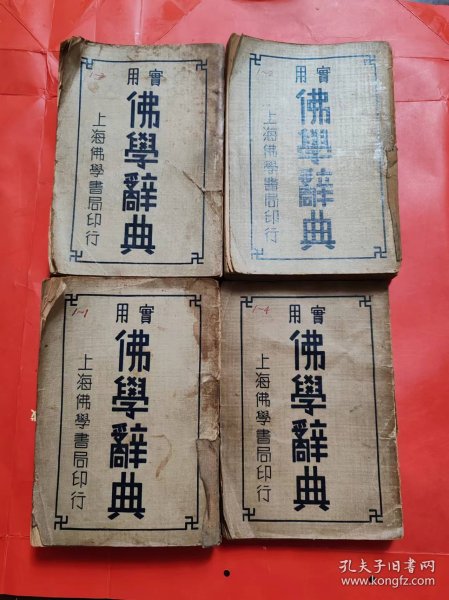 實用
佛學辭典
上海佛學書局印行
1-3
實用
佛學辭典
上海佛學書局印行
實用
佛學辭典
上海佛學書局印行
1-1
實用
佛學辭典
上海佛學書局印行
1-4
孔夫子旧书网
www.kongfz.com